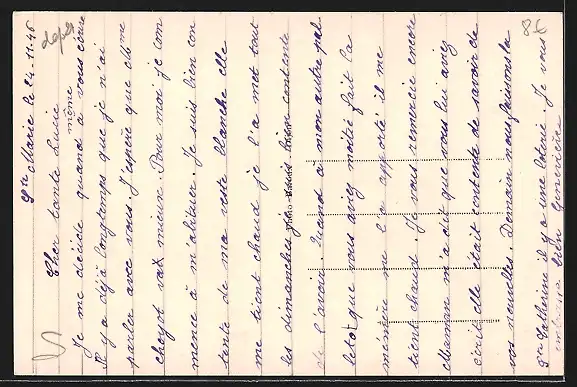 Ste Marie le 24.11.46
Cher tante Lucie
Je me décide quand même à vous écrire
Il y a déjà longtemps que je n'ai
parler avec vous. J'espère que Mme
choyot vat mieux. Pour moi je com
mence à m'abituer. Je suis bien con
tente de ma veste blanche elle
me tient chaud je l'a met tout
les dimanches bien contente
de l'avoir. Quand à mon autre pal
letot que vous aviez moitié fait la
mémène me l'a apporté il me
tient chaud. Je vous remercie encore
Maman m'a dit que vous lui aviez
écris elle était contente de savoir de
vos nouvelles. Demain nous faisons la
Ste Catherine il y a une loterie Je vous
embrasse bien Geneviève
86